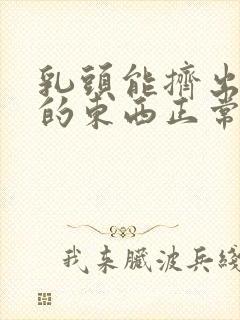 乳頭能擠出
的东西正常
我来臟波兵綫